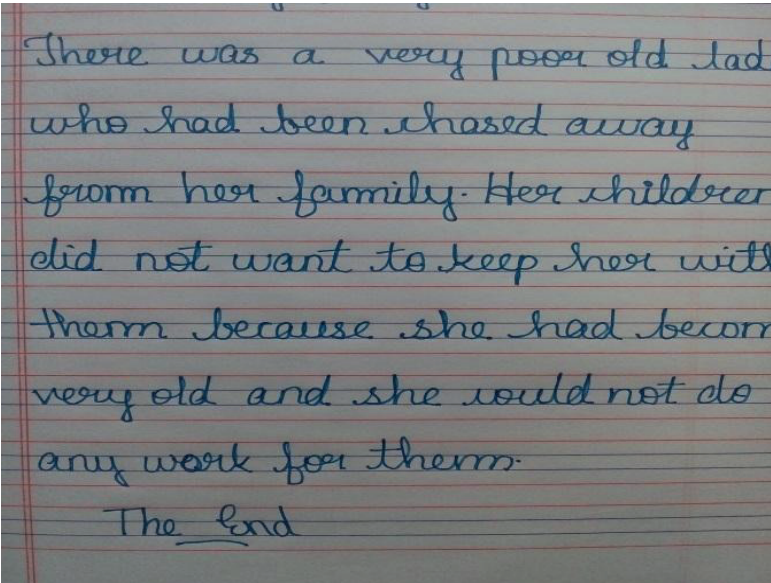 There was a very poor old lad
who had been chased away
from her family. Her childrer
did not want to keep her with
them because she had becom
very old and she could not do
any work for them.
The End